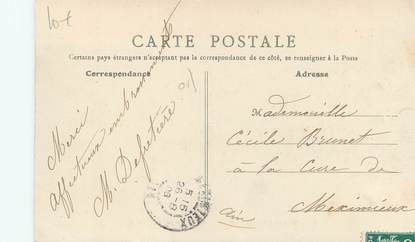 10-€
CARTE POSTALE
Certains pays étrangers n'acceptant pas la correspondance de ce côté, se renseigner à la Poste
Correspondance
Adresse
Merci
Affectueux embrassements
M.
Mademoiselle
Cécile Brunet
à la Cure de
Meximieux
Ain
5-15
26-8
09